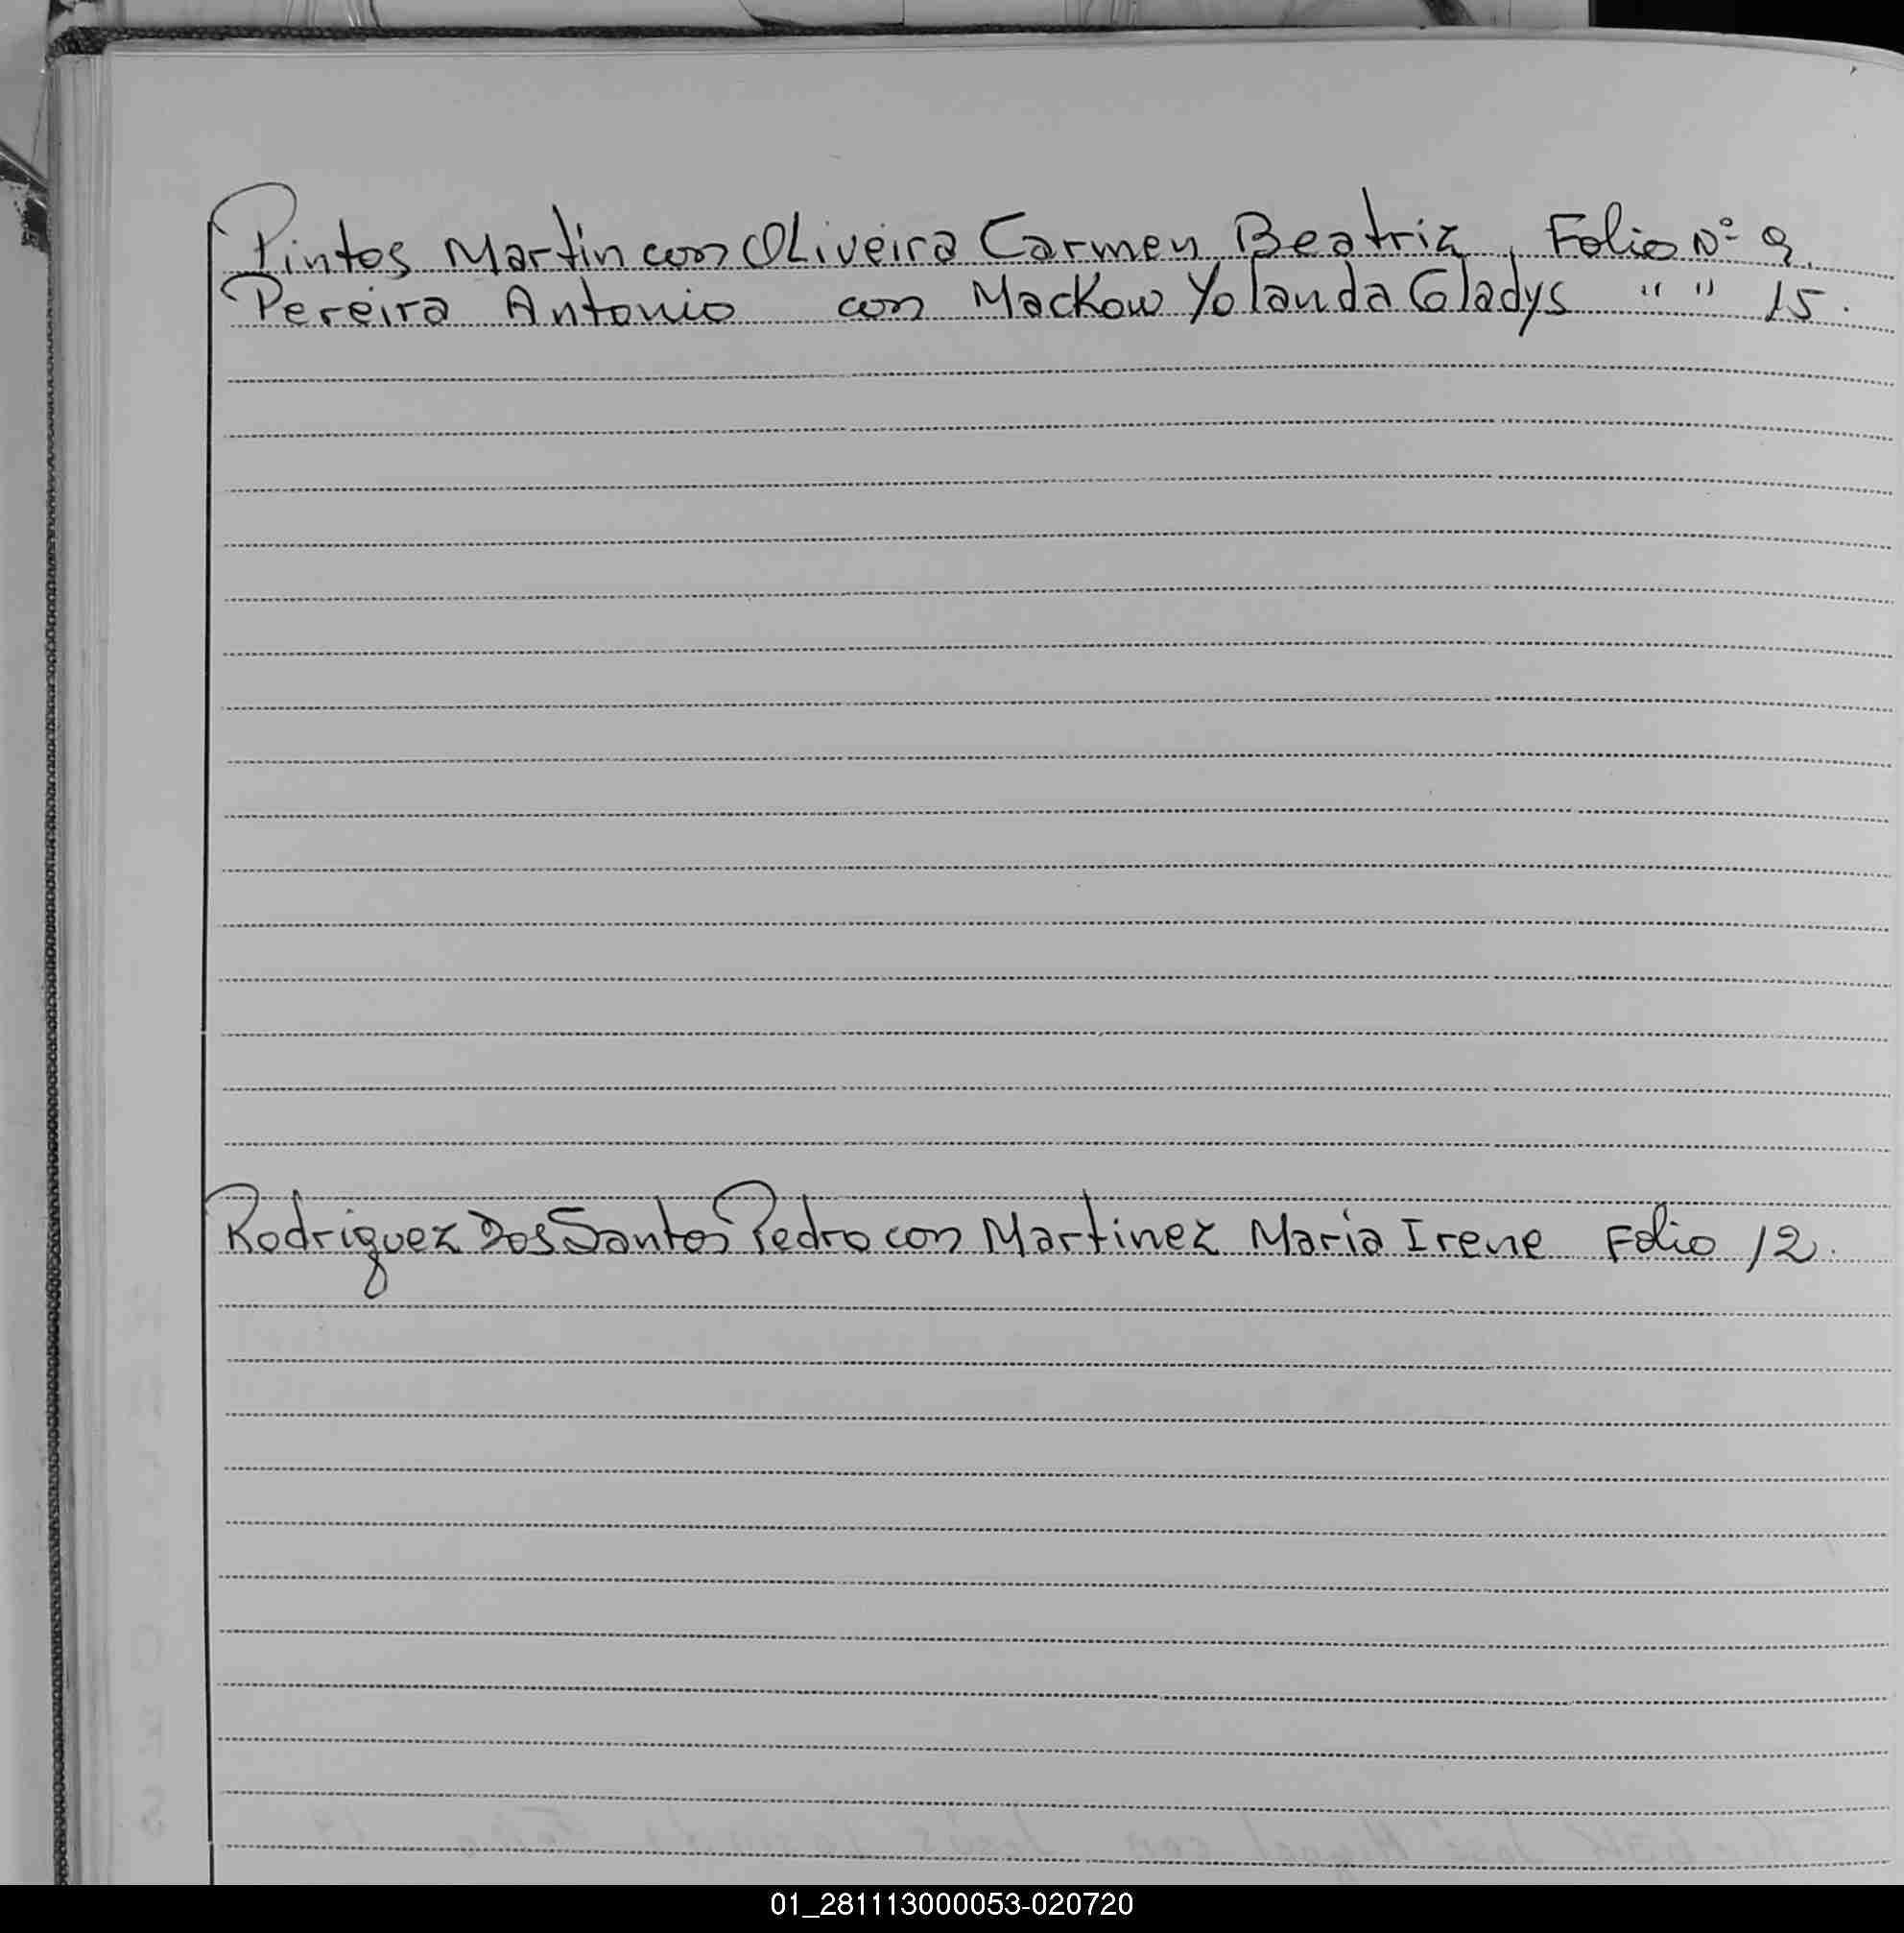 Pintos Martin con Oliveira Carmen Beatriz, Folio Nº 9.
Pereira Antonio con Mackow Yolanda Gladys " " 15.
Rodriguez Dos Santos Pedro con Martinez María Irene Folio 12.
01_281113000053-020720